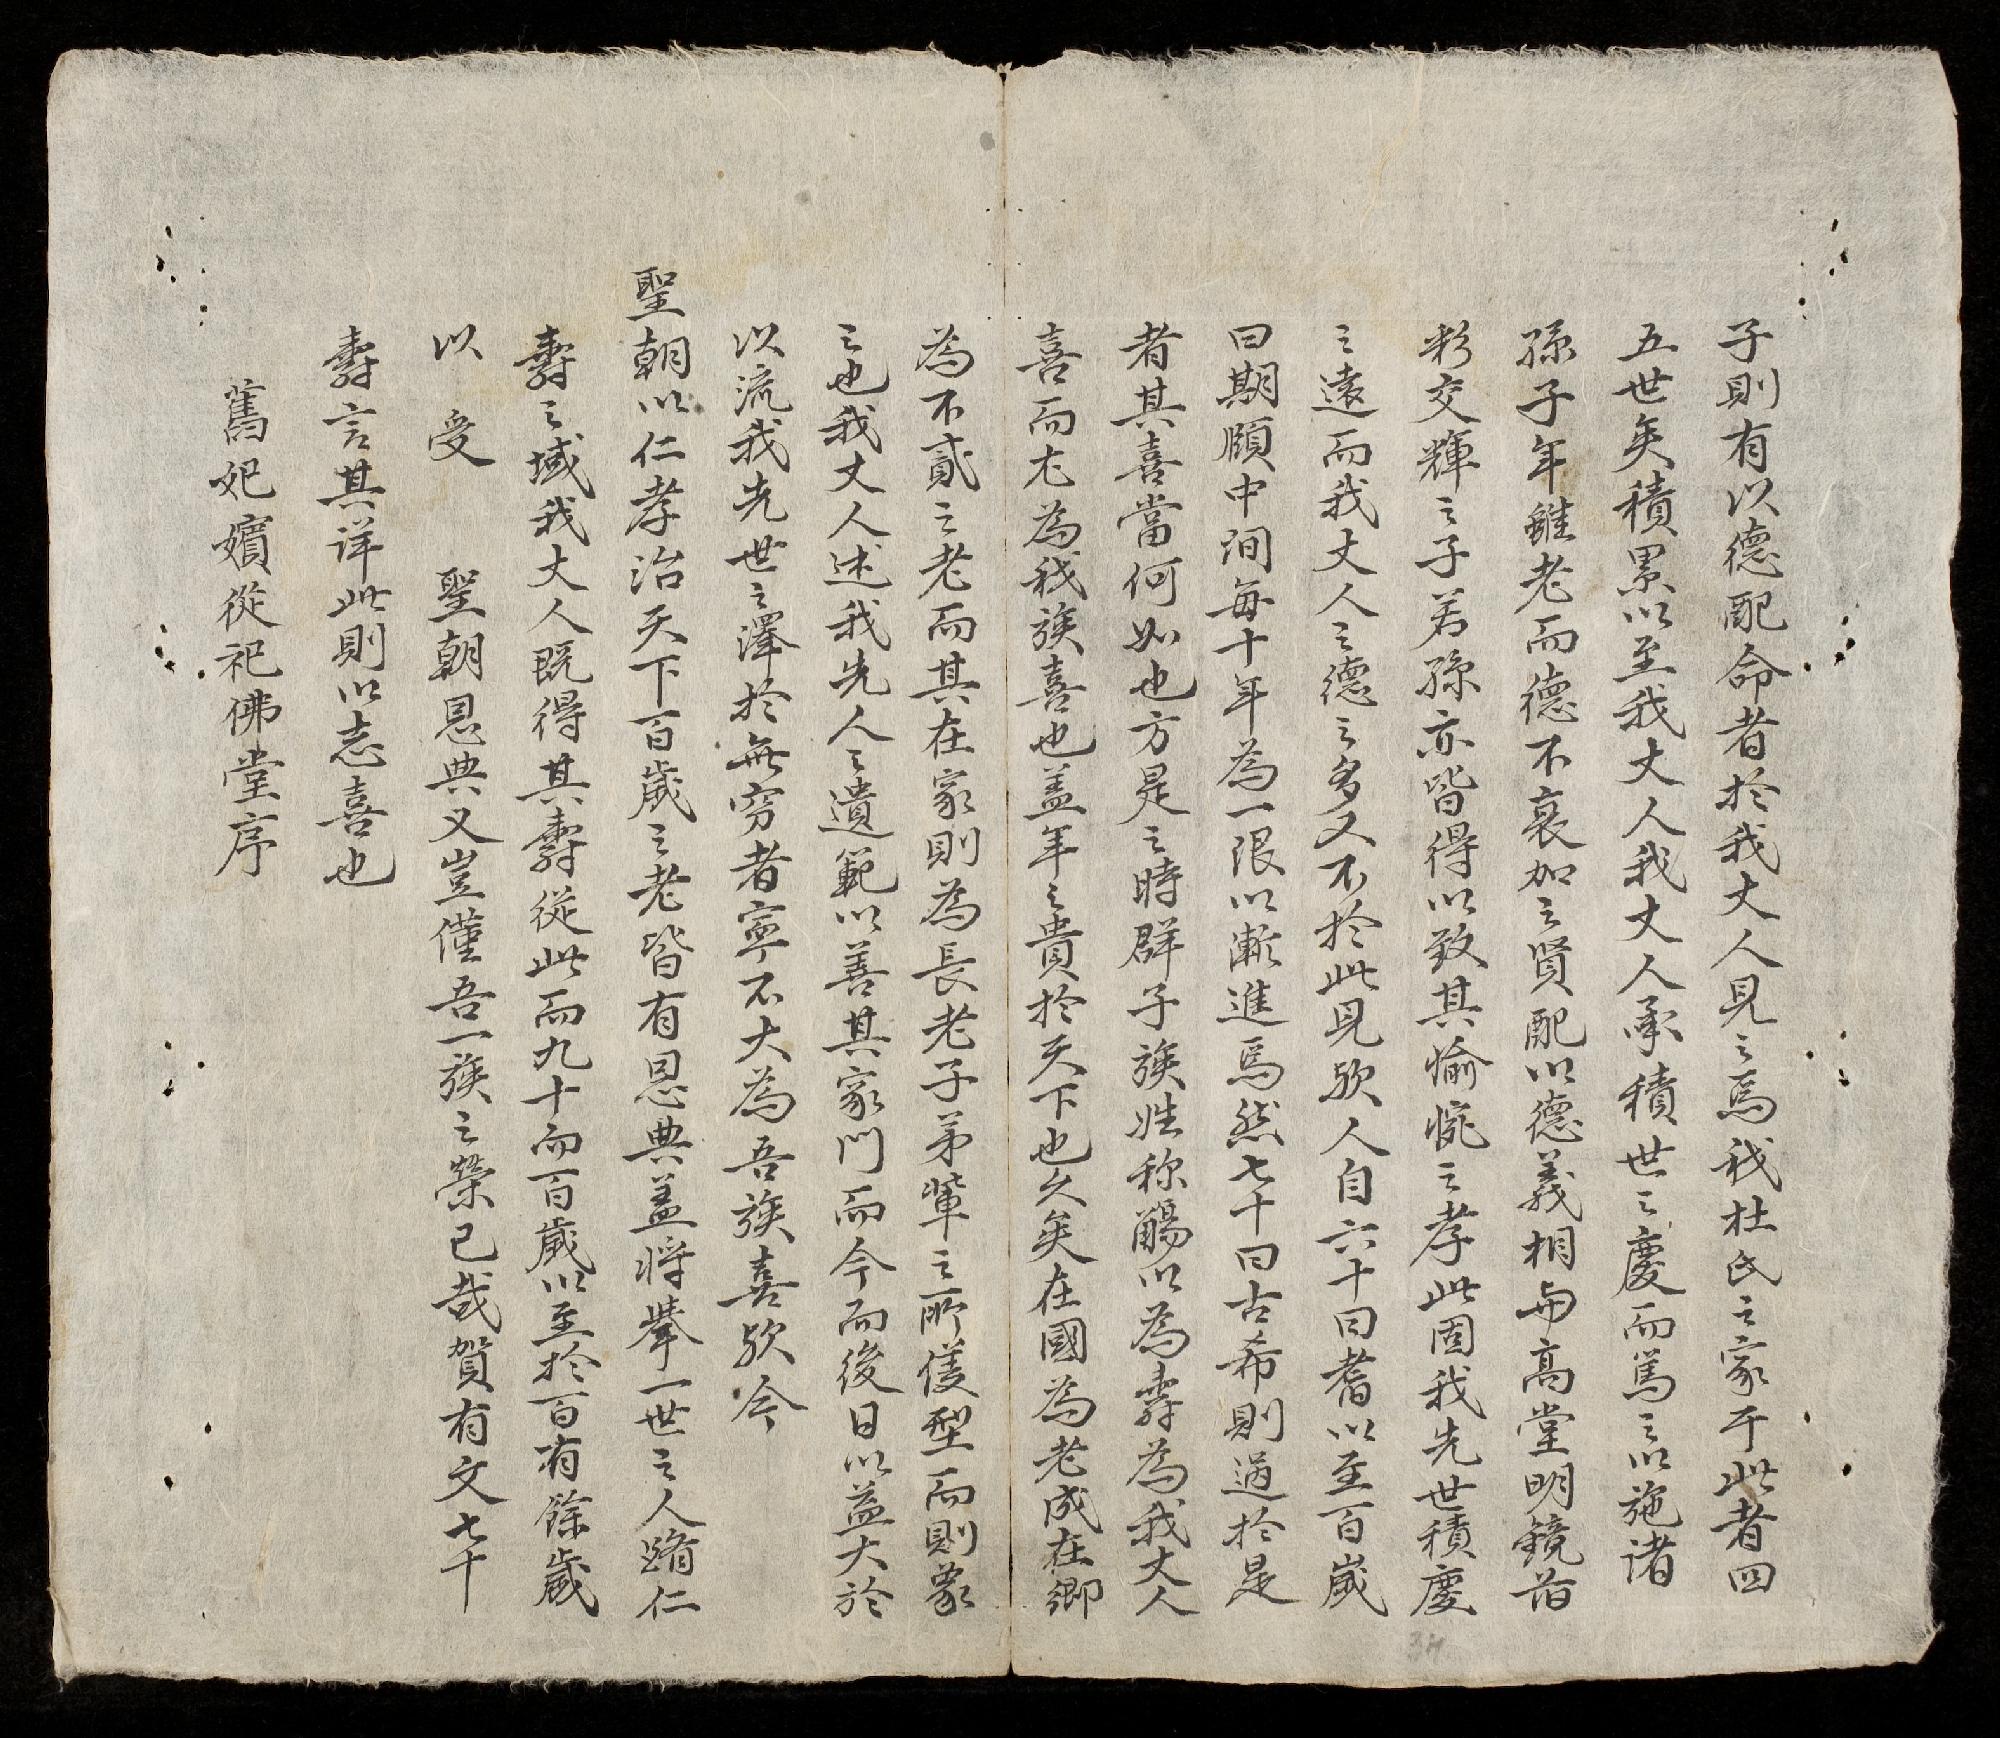 子則有以德配命者於我丈人見之焉我杜氏之家于此者四
五世矣積累以至我丈人我丈人承積世之慶而篤之以施諸
孫子年雖老而德不衰加之賢配以德義相与高堂明鏡
彩交輝之子若孫亦皆得以致其愉惋之孝此固我先世積慶
之遠而我丈人之德之多又不於此見欤人自六十曰耆以至百歲
曰期頤中間每十年為一限以漸進焉然七十曰古希則過於是
者其喜當何如也方是之時群子族姓称觴以為壽為我丈人
喜而尤為我族喜也盖年之貴於天下也久矣在國為老成在鄉
為不貳之老而其在家則為長老子弟輩之所儀型而則蒙
之也我丈人述我先人之遺範以善其家門而今而後日以益大於
以流我先世之澤於無穷者寧不大為吾族喜欤今
聖朝以仁孝治天下百歲之老皆有恩典盖将擧一世之人躋仁
壽之域我丈人既得其壽從此而九十而百歲以至於百有餘歲
以受聖朝恩典又豈僅吾一族之榮已哉賀有文七十
壽言其详此則以志喜也
舊妃嬪從祀佛堂序
34